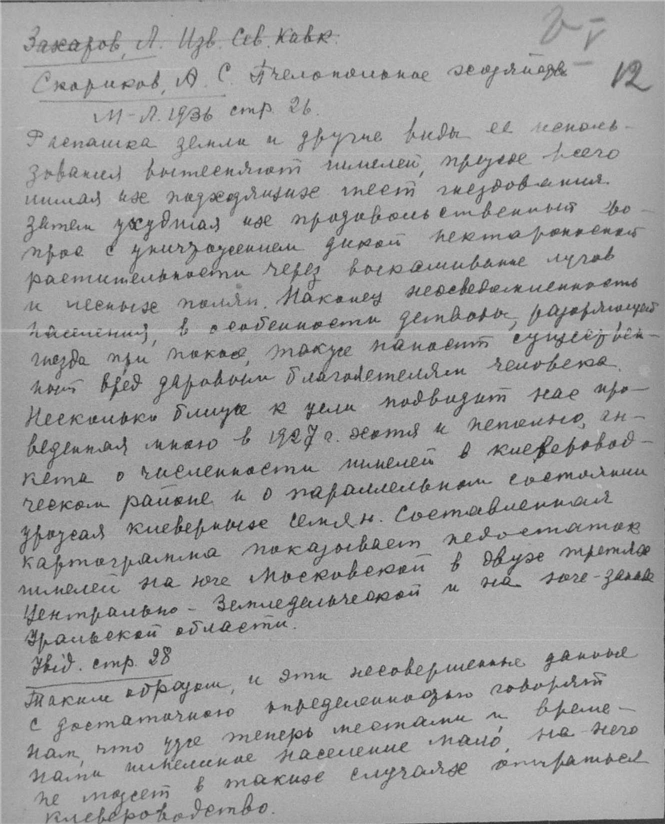 Захаров, А. Изв. Сев. Кавк.
12
Скориков, А. С. Пчелопольное хозяйство
М-Л. 1936 стр. 26.
Распашка земли и другие виды ее исполь-
зования вытесняют шмелей, прежде всего
лишая их подходящих мест гнездования
затем ухудшая их продовольственный во-
прос с уничтожением дикой нектароносной
растительности через выкашивание лугов
и лесных полян. Наконец неосведомленность
населения, в особенности детворы, разоряющей
гнезда при покосе, также наносит существен-
ный вред даровым благодетелям человека.
Несколько ближе к цели подводит нас про-
веденная мною в 1927 г. хотя и неполно, ан-
кета о численности шмелей в клеверовод-
ческом районе и о параллельном состоянии
урожая клеверных семян. Составленная
картограмма показывает недостаток
шмелей на юге Московской в двух третях
Центрально-Земледельческой и на юго-западе
Уральской области.
Ibid. стр. 28
Таким образом, и эти несовершенные данные
с достаточною определенностью говорят
нам, что уже теперь местами и време-
нами шмелиное население мало, на него
не может в таких случаях опираться
клевероводство.